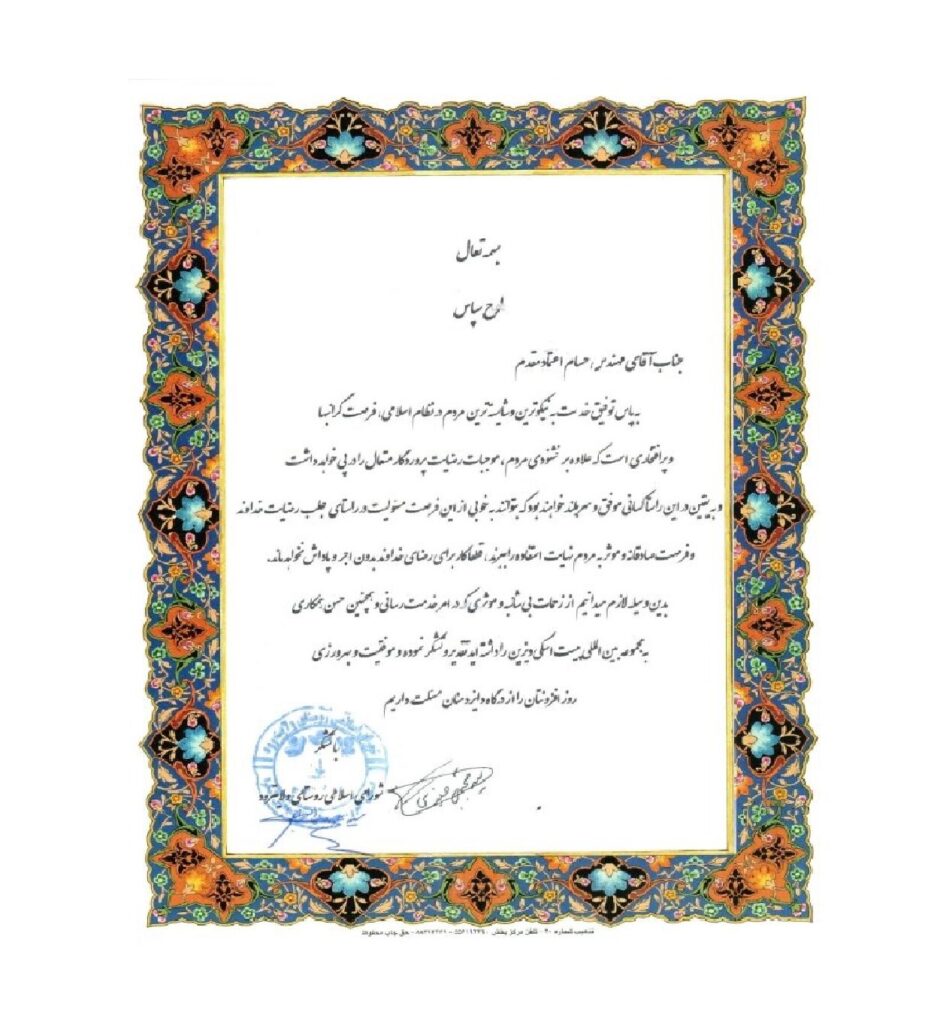 بسمه تعالی
لوح سپاس
جناب آقای مهندس حسام اعتماد مقدم
به پاس توفیق خدمت به نیکوترین و شایسته ترین مردم در نظام اسلامی، فرصت گرانبها
و پر افتخاری است که علاوه بر خشنودی مردم، موجبات رضایت پروردگار متعال را در پی خواهد داشت
و به یقین در این راستا کسانی موفق و سربلند خواهند بود که بتوانند به خوبی از این فرصت مسئولیت در راستای جلب رضایت خداوند
و فرصت صادقانه و موثر به مردم نهایت استفاده را ببرند، قطعا کار برای رضای خداوند بدون اجر و پاداش نخواهد ماند.
بدین وسیله لازم میدانیم از زحمات بی شائبه و موثری که در امر خدمت رسانی و همچنین حسن همکاری
به مجموعه بین المللی پیست اسکی دیزین را داشته اید تقدیر و تشکر نموده و موفقیت و بهروزی
روز افزونتان را از درگاه ایزد منان مسئلت داریم
با تشکر
شورای اسلامی روستای ولایترود